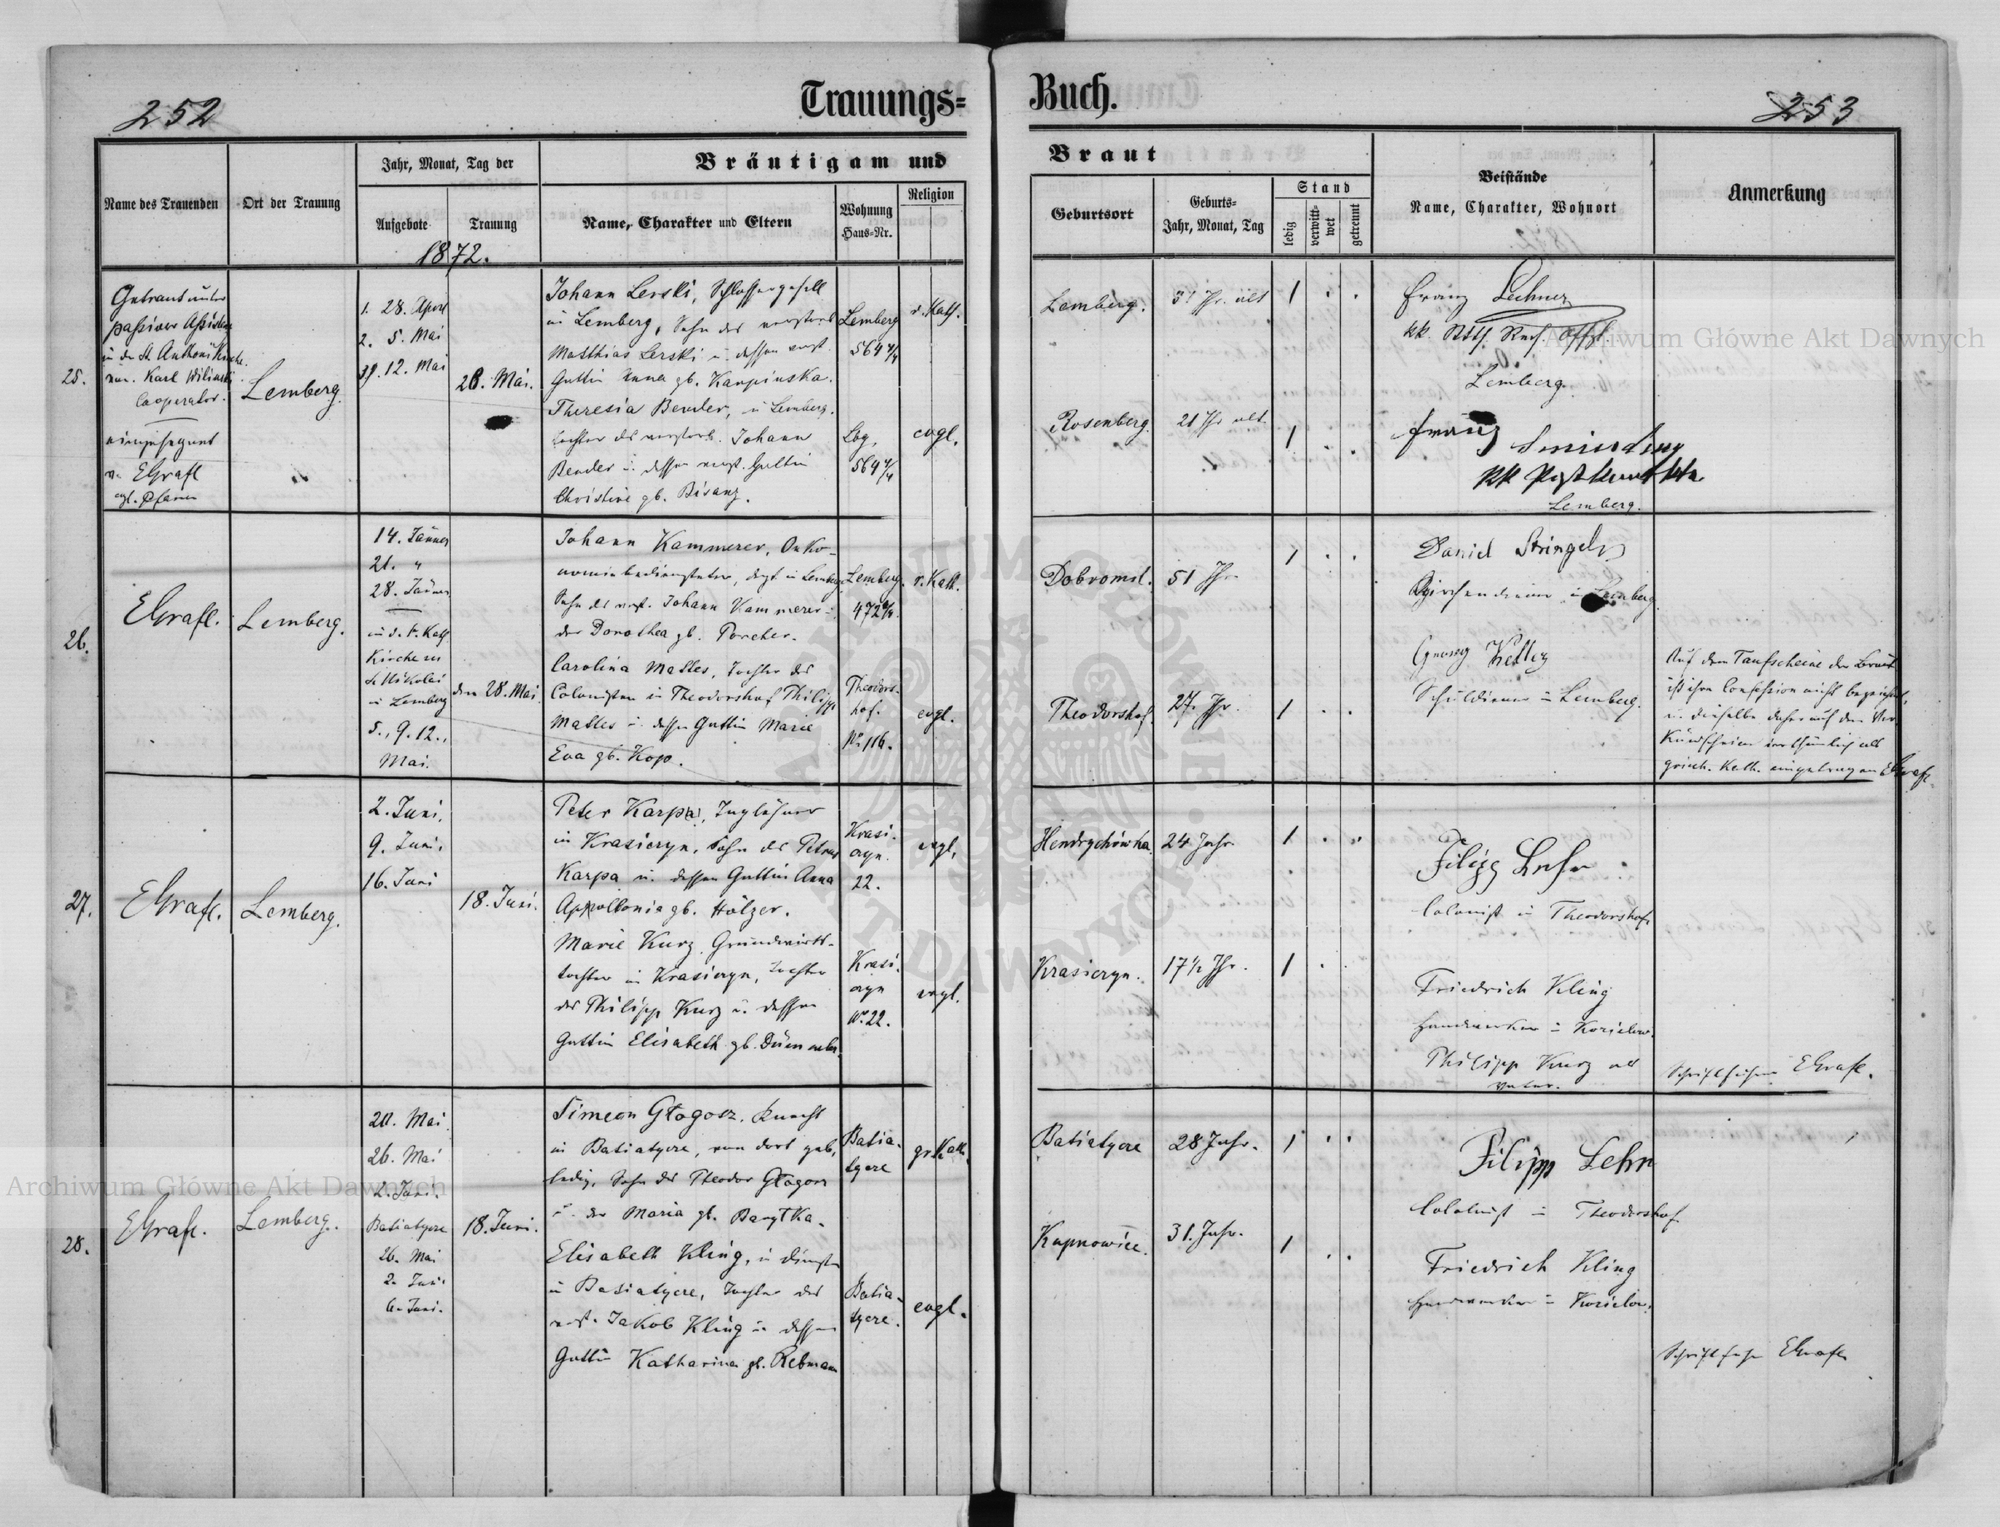 252
Trauungs=
Buch.
253
Name des Trauenden
Ort der Trauung
Jahr, Monat, Tag der
Aufgebote
Trauung
Bräutigam und
Name, Charakter und Eltern
Wohnung
Haus=Nr.
Religion
Braut
Geburtsort
Geburts=
Jahr, Monat, Tag
Stand
ledig
verwitt-
wet
getrennt
Beistände
Name, Charakter, Wohnort
Anmerkung
1872.
25.
Getraut unter
in der St. Anthoni Kirche
von Karl
Cooperator.
eingesegnet
v. EGrafl
evgl. Pfarrer
Lemberg.
1. 28. April
2. 5. Mai
3. 12. Mai
28. Mai.
Johann Lerski, Schlossergesell
in Lemberg, Sohn des verstorb
Matthias Lerski u. dessen verst.
Gattin Anna gb. Karpinska.
Theresia Bender, in Lemberg.
Tochter des verstorb. Johann
Bender u. dessen verst. Gattin
Christine gb. Bisanz.
Lemberg
564 4/4
r. Kath.
Lbg.
564 4/4
evgl.
Lemberg.
31 Jhr. alt
1 . .
Rosenberg.
21 Jhr alt
1 . .
Franz Lechner
kk.
Lemberg.
Franz
kk Post
Lemberg.
26.
EGrafl.
Lemberg.
14. Jänner
21. "
28. Jänner
in d. r. Kath
Kirche zu
St Nikolai
in Lemberg
5., 9. 12.,
Mai.
den 28. Mai.
Johann Kammerer, Oeko-
nomiebediensteter, dzt in Lemberg
Sohn des verst. Johann Kammerer u.
der Dorothea gb. Porcher.
Carolina Mattes, Tochter des
Colonisten in Theodorshof Philipp
Mattes u. dessen Gattin Marie
Eva gb. Kop.
Lemberg.
472 4/4.
r. Kath.
Theodors-
hof.
Nr. 116.
evgl.
Dobromil.
51 Jhr.
1 . .
Theodorshof.
27. Jhr.
1 . .
Daniel Stringel
Kirchendiener in Lemberg.
Georg Keller
Schuldiener in Lemberg.
Auf dem Taufscheine der Braut
ist ihre Confession nicht bezeichnet,
u. dieselbe daher auf dem Ver-
kündschein irrthümlich als
griech. Kath. eingetragen EGrafl.
27.
EGrafl.
Lemberg.
2. Juni.
9. Juni.
16. Juni
18. Juni.
Peter Karpa, Taglöhner
in Krasiczyn, Sohn des Petrus
Karpa u. dessen Gattin Anna
Appollonia gb. Hölzer.
Marie Kurz, Grundwirths-
tochter in Krasiczyn, Tochter
des Philipp Kurz u. dessen
Gattin Elisabeth gb.
Krasi-
czyn.
22.
evgl.
Krasi-
czyn
Nr. 22.
evgl.
Hendrychówka.
24 Jahr.
1 . .
Krasiczyn.
17 1/2 Jhr.
1 .
Filipp Lehr
Colonist in Theodorshof.
Friedrich Kling
in Kozielow.
Philipp Kurz als
Vater.
EGrafl.
28.
EGrafl.
Lemberg.
20. Mai.
26. Mai
2. Juni.
Batiatycze
26. Mai
2. Juni
6. Juni.
18. Juni.
Simeon Głogosz, Knecht
in Batiatycze, von dort geb.
ledig, Sohn des Theodor Głogosz
u. der Maria gb.
Elisabeth Kling, in Diensten
in Batiatycze, Tochter des
verst. Jakob Kling u. dessen
Gattin Katharina gb. Rebmann
Batia-
tycze
gr. Kath.
Batia-
tycze.
evgl.
Batiatycze
28 Jahr.
1 . .
Kupnowice.
31. Jahr.
1 . .
Filipp Lehr
Colonist in Theodorshof
Friedrich Kling
in Kozielow.
EGrafl
Archiwum Główne Akt Dawnych
Archiwum Główne Akt Dawnych
ARCHIWUM GŁÓWNE AKT DAWNYCH